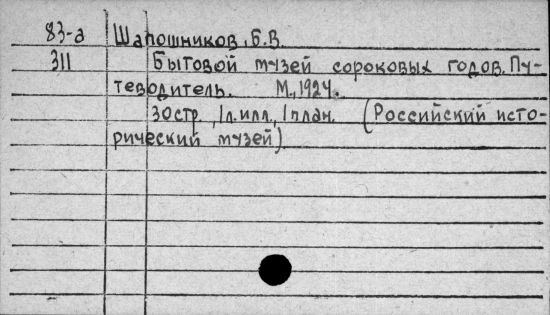 83-а Шапошников, Б.В.
311 Бытовой музей сороковых годов. Пу-
теводитель. М., 1924.
30стр., 1л.илл., 1план. (Российский исто-
рический музей)